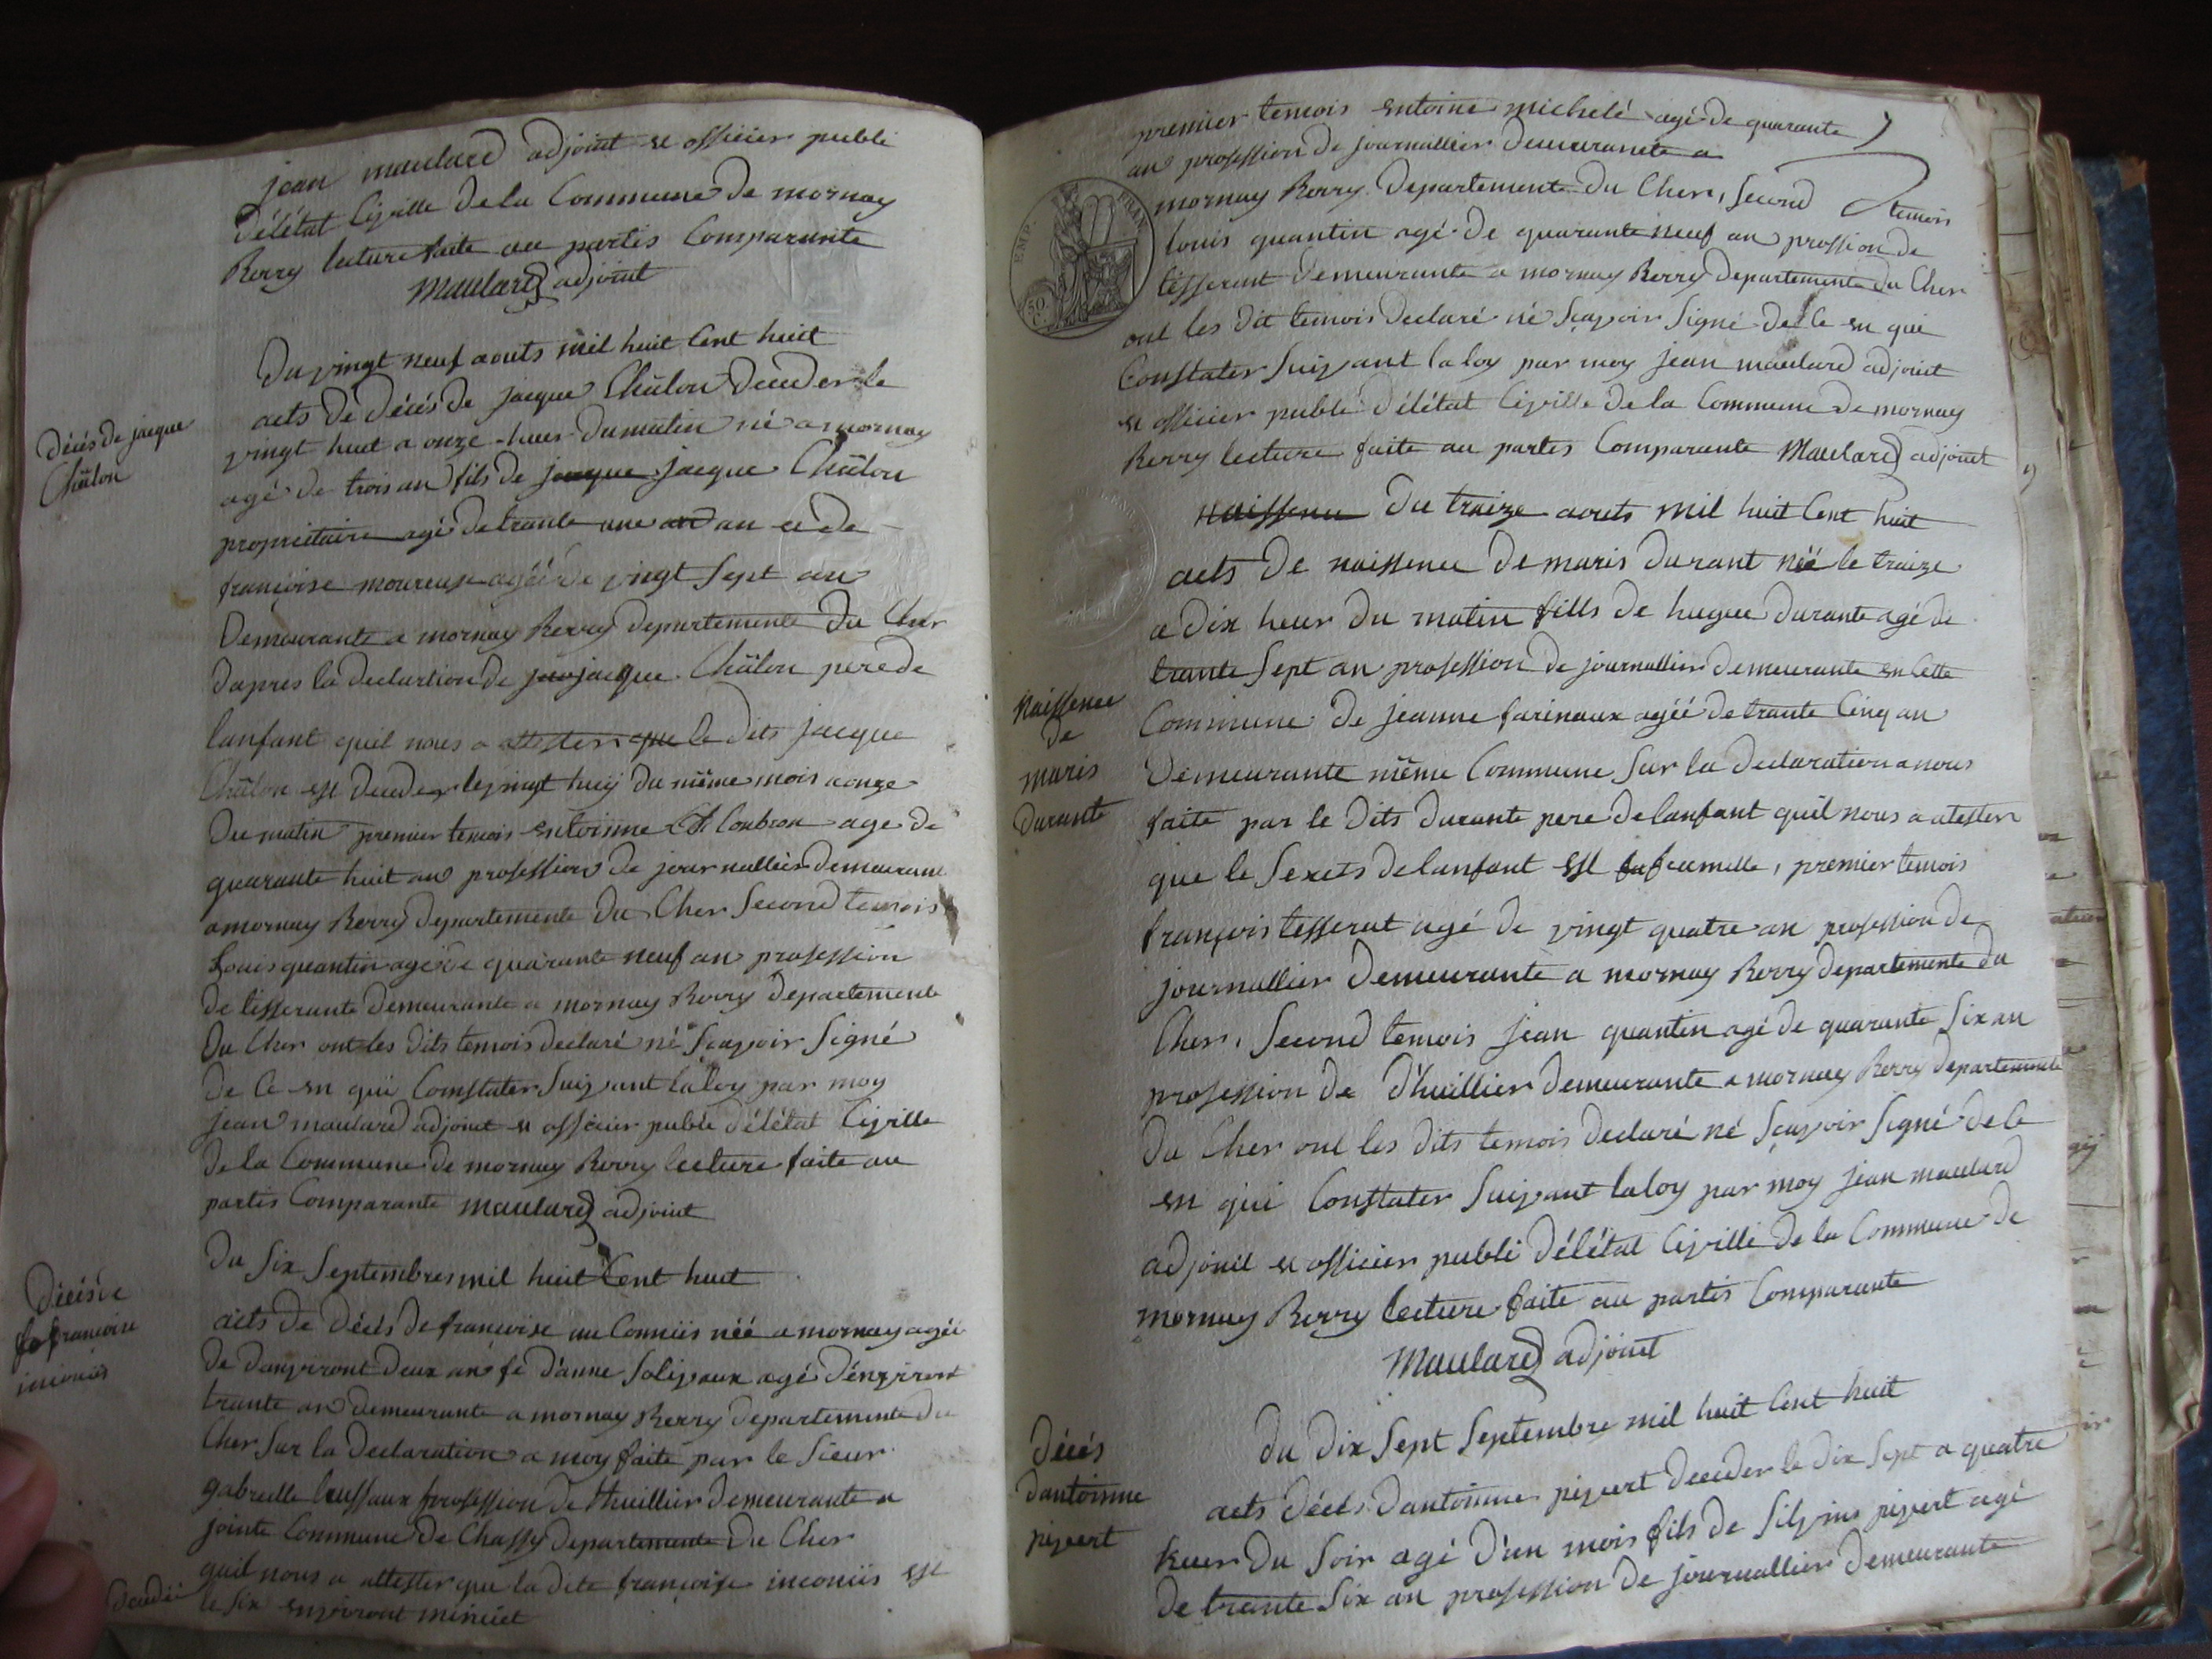 jean maulard adjoint et officier publi
délétat Civille dela Commune de mornay
Berry lecture faite au partis Comparante
Maulard adjoint
Du vingt neuf aouts mil huit Cent huit
Décés de jacque
Châlon
acts De Décés De jacque Châlon Deceder le
vingt huit a onze heur du matin né a mornay
agé de trois an fils de jacque jacque Châlon
proprietaire agé de trante une an an et de
françoise moureux agéé de vingt sept an
Demeurante a mornay Berry departemente Du Cher
dapres la declartion de jacque Châlon pere de
lanfant quil nous a attester que le dits jacque
Châlon est deceder le vingt huij du même mois a onze
Du matin premier temois entoinne Coubron age de
quarante huit an profession de journallier demeurant
a mornay Berry departemente Du Cher Second temois
Louis quantin agé de quarante neuf an profession
de tisserante demeurante a mornay Berry departemente
Du Cher ont les dits temois declaré né sçavoir signé
de ce en qui Constater suivant la loy par moy
jean maulard adjoint et officier publi délétat Civille
de la Commune de mornay Berry lecture faite au
partis Comparante maulard adjoint
Du six Septembres mil huit Cent huit
Décés de
françoise
inconiis
acts de décés de françoise inconiis néé a mornay agéé
de danviront deux an d'anne solivaux agé dénviront
trante an demeurante a mornay Berry departemente du
Cher sur la declaration a moy faite par le sieur
gabrielle laussaux profession de thuillier demeurante a
jointe Commune de Chassy departemente Du Cher
quil nous a attester que la dite françoise inconiis est
deudéé le six environt minuiet
premier temois entoine michelé agé de quarante
an profession de journallier demeurante a
mornay Berry departemente du Cher, second temois
louis quantin agé de quarante neuf an profession de
tisserant demeurante a mornay Berry departemente du Cher
EMP. FRAN.
50 C.
ont les dit temois declaré né sçavoir signé de ce en qui
Constater suivant la loy par moy jean maulard adjoint
et officier publi délétat Civille de la Commune de mornay
Berry lecture faite au partis Comparante Maulard adjoint
naissence Du traize aouts mil huit Cent huit
acts De naissence De maris durant néé le traize
a dix heur du matin fills de hugue durante agé de
trante sept an profession de journallier demeurante en cette
Naissence
de
maris
durante
Commune de jeanne farinaux agéé de trante Cinq an
Demeurante même Commune sur la declaration a nous
faite par le dits durante pere de lanfant quil nous a atester
que le sexcts de lanfant est fa feumelle, premier temois
françois tesserat agé de vingt quatre an profession de
journallier demeurante a mornay Berry departemente du
Cher, second temois jean quantin agé de quarante six an
profession de d'huillier demeurante a mornay Berry departemente
du Cher ont les dits temois declaré né sçavoir signé de ce
en qui Constater suivant la loy par moy jean maulard
adjoint et officier publi délétat Civille de la Commune de
mornay Berry lecture faite au partis Comparante
Maulard adjoint
du dix sept septembre mil huit Cent huit
Décés
dantoinne
pivert
acts décés dantoinne pivert deceder le dix sept a quatre
heur du soir agé d'un mois fils de silvins pivert agé
de trante six an profession de journallier demeurante